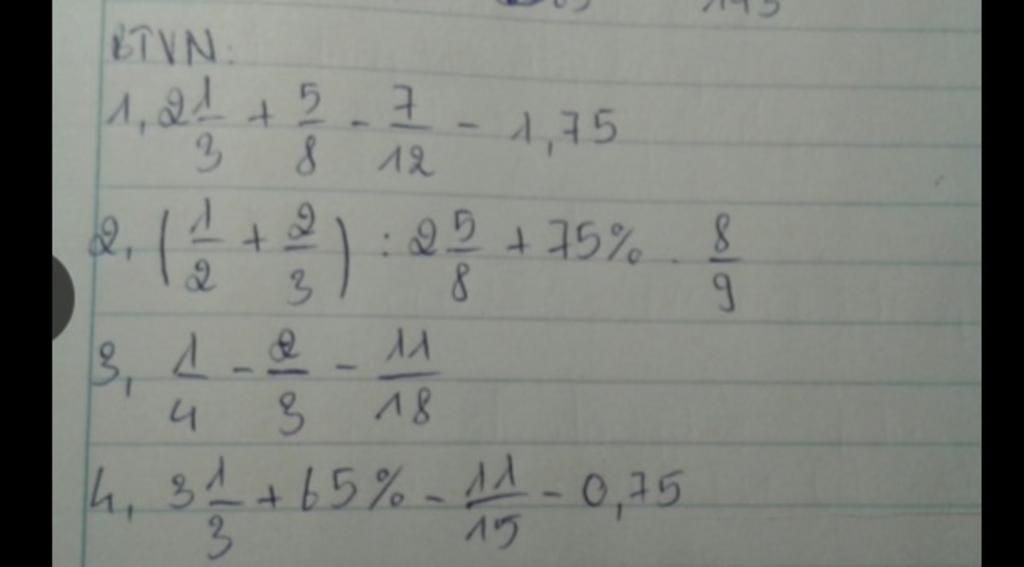 BTVN:
1, 2 1/3 + 5/8 - 7/12 - 1,75
2, (1/2 + 2/3) : 2 5/8 + 75% . 8/9
3, 1/4 - 2/3 - 11/18
4, 3 1/3 + 65% - 11/15 - 0,75